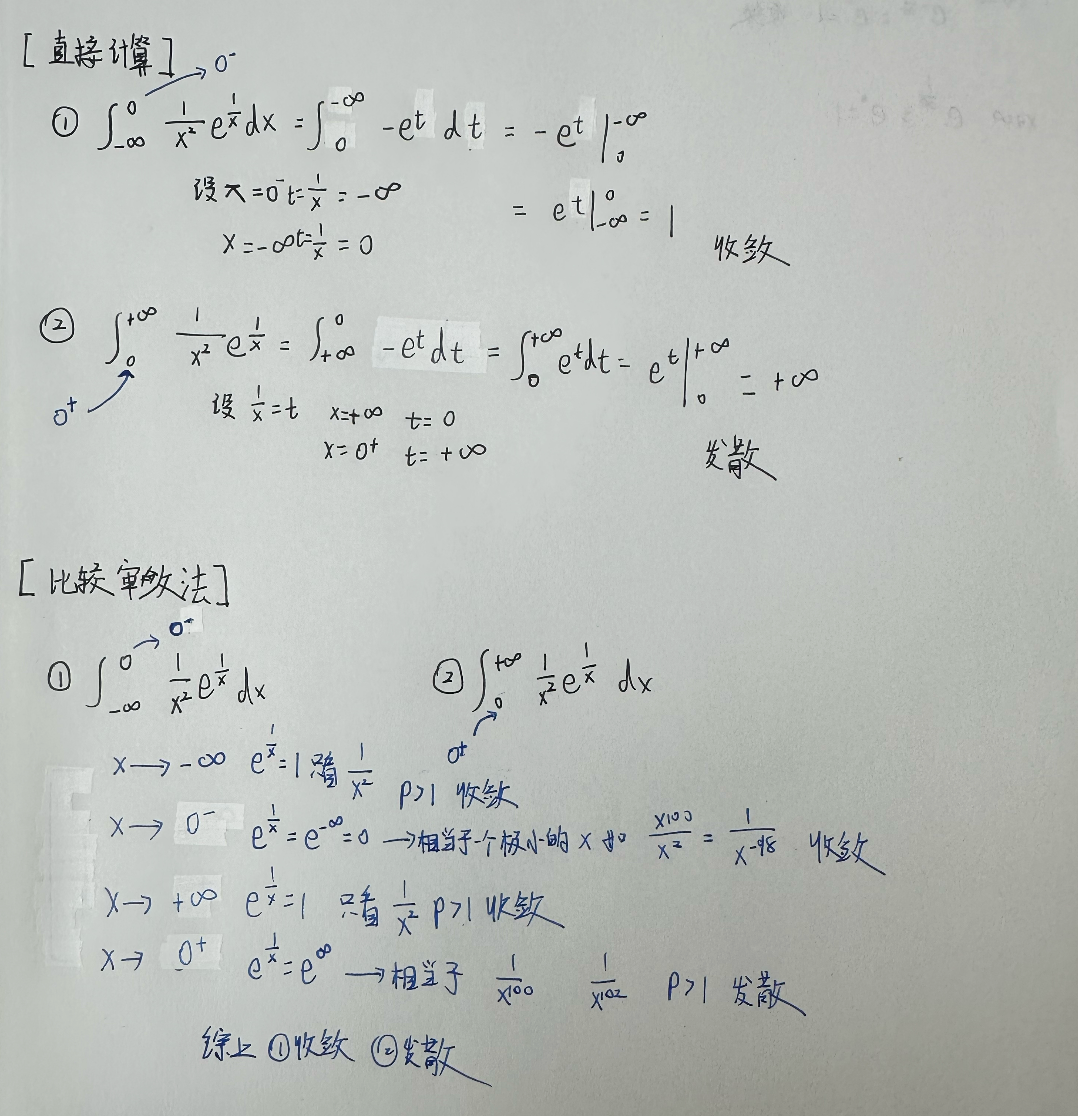 [直接计算]
→0⁻
① ∫_{-∞}^{0} 1/x² e^{1/x} dx = ∫_{0}^{-∞} -e^t dt = -e^t |_{0}^{-∞}
设 x=0⁻ t=1/x = -∞
= e^t |_{-∞}^{0} = 1
x=-∞ t=1/x = 0
收敛
② ∫_{0}^{+∞} 1/x² e^{1/x} = ∫_{+∞}^{0} -e^t dt = ∫_{0}^{+∞} e^t dt = e^t |_{0}^{+∞} = +∞
0⁺
设 1/x = t x=+∞ t=0
x=0⁺ t=+∞
发散
[比较审敛法]
→0⁻
① ∫_{-∞}^{0} 1/x² e^{1/x} dx
② ∫_{0}^{+∞} 1/x² e^{1/x} dx
0⁺
x→-∞ e^{1/x}=1 只看 1/x² P>1 收敛
x→0⁻ e^{1/x}=e^{-∞}=0 →相当于一个极小的x 如 x^{100}/x² = 1/x^{-98} 收敛
x→+∞ e^{1/x}=1 只看 1/x² P>1 收敛
x→0⁺ e^{1/x}=e^∞ →相当于 1/x^{100} 1/x^{102} P>1 发散
综上 ①收敛 ②发散